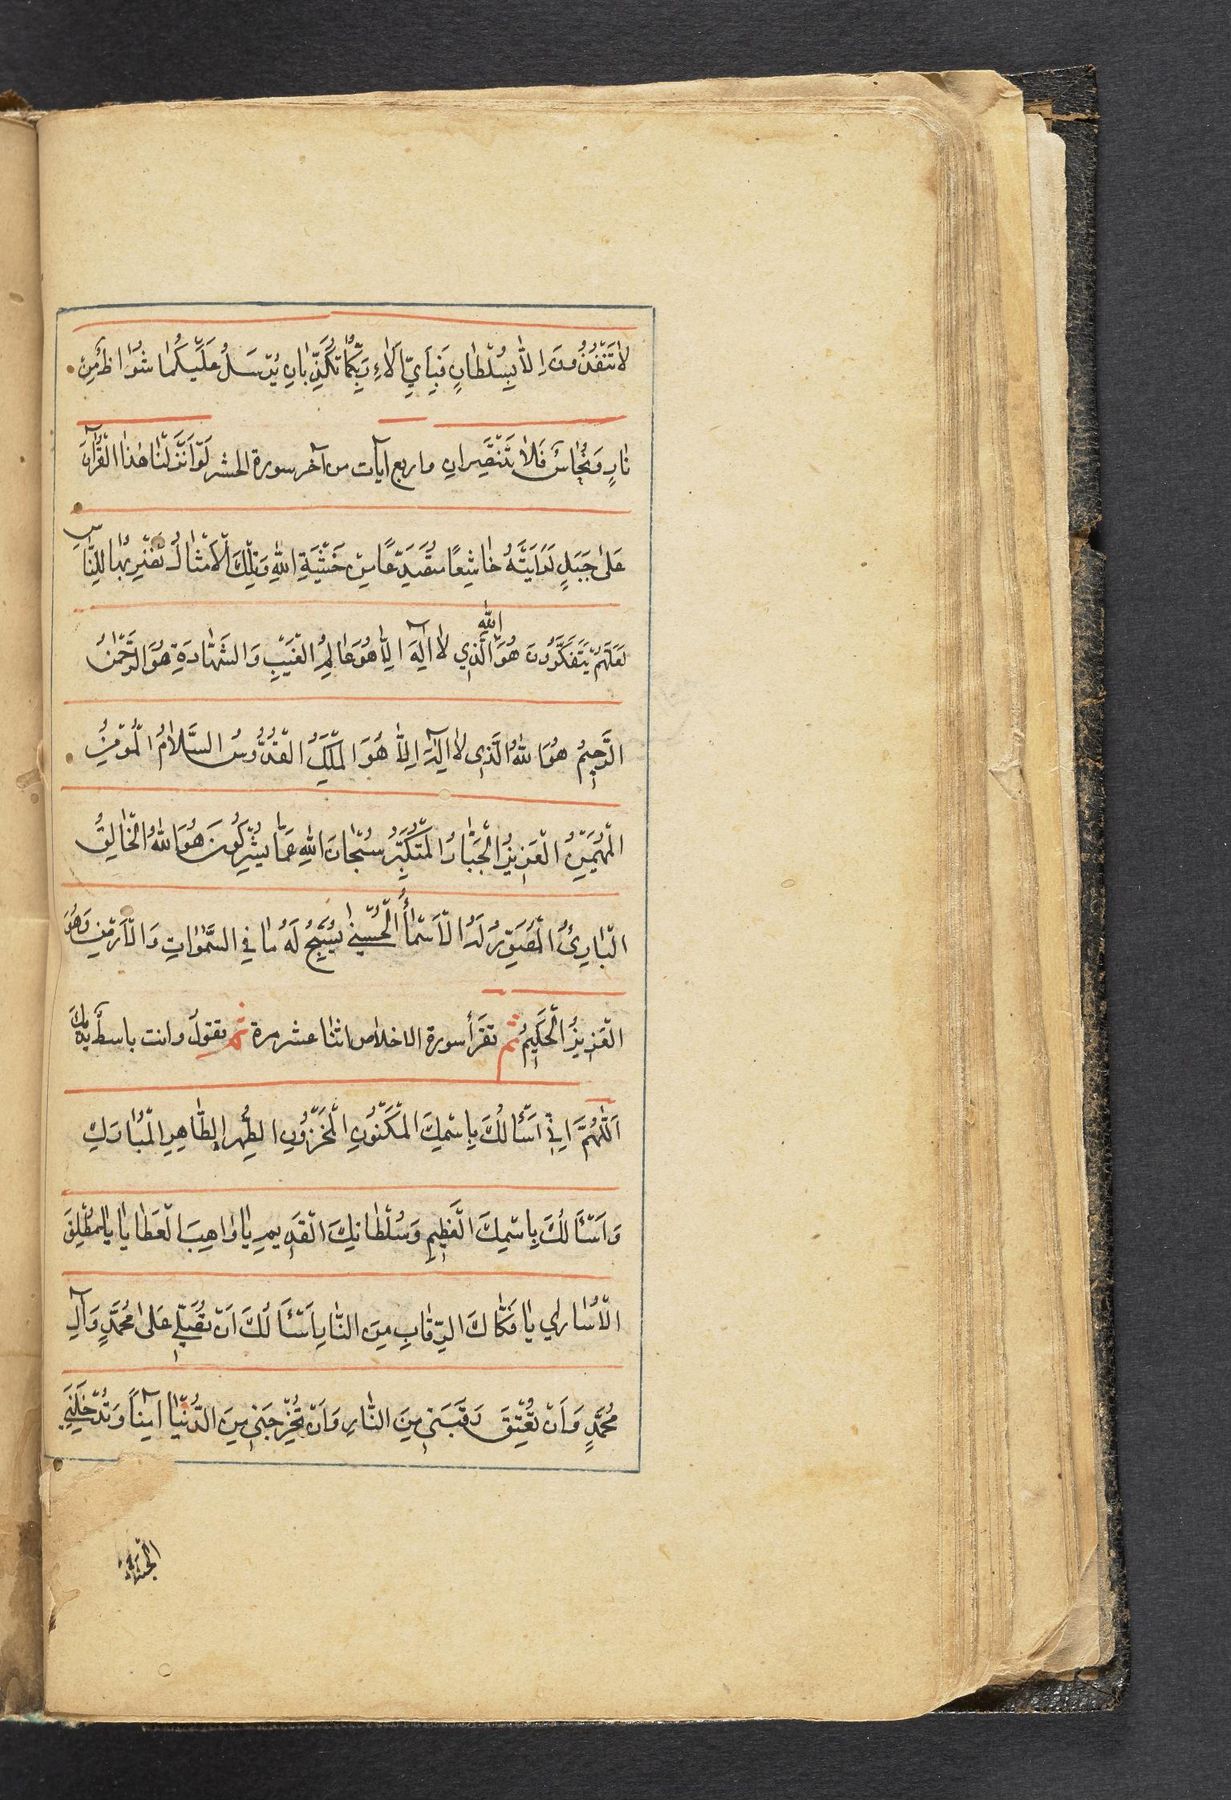 لٰا تَنْفُذُونَ اِلّٰا بِسُلْطٰانٍ فَبِاَيِّ اٰلَاءِ رَبِّكُمٰا تُكَذِّبٰانِ يُرْسَلُ عَلَيْكُمٰا شُوٰاظٌ مِنْ
نٰارٍ وَنُحٰاسٌ فَلٰا تَنْتَصِرٰانِ واربع آيات من آخر سورة الحشر لَوْ اَنْزَلْنٰا هٰذَا الْقُرْآنَ
عَلىٰ جَبَلٍ لَرَاَيْتَهُ خٰاشِعًا مُتَصَدِّعًا مِنْ خَشْيَةِ اللهِ وَتِلْكَ الْاَمْثٰالُ نَضْرِبُهٰا لِلنّٰاسِ
لَعَلَّهُمْ يَتَفَكَّرُونَ هُوَ اللهُ الَّذِي لٰا اِلٰهَ اِلّٰا هُوَ عٰالِمُ الْغَيْبِ وَالشَّهٰادَةِ هُوَ الرَّحْمٰنُ
الرَّحِيمُ هُوَ اللهُ الَّذِي لٰا اِلٰهَ اِلّٰا هُوَ الْمَلِكُ الْقُدُّوسُ السَّلٰامُ الْمُؤْمِنُ
الْمُهَيْمِنُ الْعَزِيزُ الْجَبّٰارُ الْمُتَكَبِّرُ سُبْحٰانَ اللهِ عَمّٰا يُشْرِكُونَ هُوَ اللهُ الْخٰالِقُ
الْبٰارِئُ الْمُصَوِّرُ لَهُ الْاَسْمٰاءُ الْحُسْنىٰ يُسَبِّحُ لَهُ مٰا فِي السَّمٰوٰاتِ وَالْاَرْضِ وَهُوَ
الْعَزِيزُ الْحَكِيمُ ثم تقرأ سورة الاخلاص اثنا عشر مرة ثم تقول وانت باسط يديك
اَللّٰهُمَّ اِنِّي اَسْأَلُكَ بِاسْمِكَ الْمَكْنُونِ الْمَخْزُونِ الطُّهْرِ الطّٰاهِرِ الْمُبٰارَكِ
وَاَسْأَلُكَ بِاسْمِكَ الْعَظِيمِ وَسُلْطٰانِكَ الْقَدِيمِ يٰا وٰاهِبَ الْعَطٰايٰا يٰا مُطْلِقَ
الْاُسٰارىٰ يٰا فَكّٰاكَ الرِّقٰابِ مِنَ النّٰارِ اَسْأَلُكَ اَنْ تُصَلِّيَ عَلىٰ مُحَمَّدٍ وَآلِ
مُحَمَّدٍ وَاَنْ تُعْتِقَ رَقَبَتِي مِنَ النّٰارِ وَاَنْ تُخْرِجَنِي مِنَ الدُّنْيٰا آمِنًا وَتُدْخِلَنِي
الْجَنَّةَ